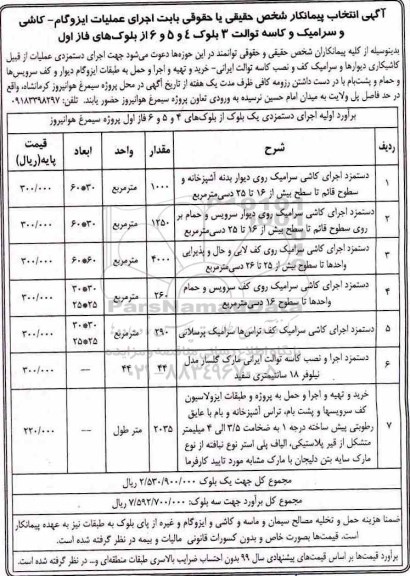 آگهی انتخاب پیمانکار شخص حقیقی یا حقوقی بابت اجرای عملیات ایزوگام- کاشی
و سرامیک و کاسه توالت ۳ بلوک ۴ و ۵ و ۶ از بلوک‌های فاز اول
بدینوسیله از کلیه پیمانکاران شخص حقیقی و حقوقی توانمند در این حوزه‌ها دعوت می‌شود جهت اجرای دستمزدی عملیات از قبیل
کاشیکاری دیوارها و سرامیک کف و نصب کاسه توالت ایرانی- خرید و تهیه و اجرا و حمل به طبقات ایزوگام دیوار و کف سرویس‌ها
و حمام و پشت‌بام با در دست داشتن رزومه کافی ظرف مدت یک هفته از تاریخ آگهی در محل پروژه سیمرغ هوانیروز کرمانشاه، واقع
در حد فاصل پل ولایت به میدان امام حسین نرسیده به ورودی تعاون پروژه سیمرغ هوانیروز حضور یابند. تلفن: ۰۹۱۸۳۳۹۸۲۹۷
برآورد اولیه اجرای دستمزدی یک بلوک از بلوک‌های ۴ و ۵ و ۶ فاز اول پروژه سیمرغ هوانیروز
ردیف شرح مقدار واحد ابعاد قیمت پایه(ریال)
۱ دستمزد اجرای کاشی سرامیک روی دیوار بدنه آشپزخانه و سطوح قائم تا سطح بیش از ۱۶ تا ۲۵ دسی‌مترمربع ۱۰۰۰ مترمربع ۳۰*۶۰ ۳۰۰/۰۰۰
۲ دستمزد اجرای کاشی سرامیک روی دیوار سرویس و حمام بر روی سطوح قائم تا سطح بیش از ۱۶ تا ۲۵ دسی‌مترمربع ۱۲۵۰ مترمربع ۳۰*۶۰ ۳۰۰/۰۰۰
۳ دستمزد اجرای کاشی سرامیک روی کف لابی و حال و پذیرایی واحدها تا سطوح بیش از ۲۵ تا ۲۶ دسی‌مترمربع ۴۰۰۰ مترمربع ۶۰*۶۰ ۳۰۰/۰۰۰
۴ دستمزد اجرای کاشی سرامیک روی کف سرویس و حمام واحدها تا سطوح ۱۶ دسی‌مترمربع ۲۶۰ مترمربع ۳۰*۳۰ ۲۵*۲۵ ۳۰۰/۰۰۰
۵ دستمزد اجرای کاشی سرامیک کف تراس‌ها سرامیک پرسلانی ۲۹۰ مترمربع ۳۰*۳۰ ۲۵*۲۵ ۳۰۰/۰۰۰
۶ دستمزد اجرا و نصب کاسه توالت ایرانی مارک گلسار مدل نیلوفر ۱۸ سانتیمتری سفید ۴۴ ۴۴ — ۳۰۰/۰۰۰
۷ خرید و تهیه و اجرا و حمل به پروژه و طبقات ایزولاسیون کف سرویسها و پشت بام، تراس آشپزخانه و بام با عایق رطوبتی پیش ساخته درجه ۱ به ضخامت ۳/۵ الی ۴ میلیمتر متشکل از قیر پلاستیکی، الیاف پلی استر نوع نیافته از نوع مارک سایه بتن دلیجان یا مارک مشابه مورد تایید کارفرما ۲۰۳۵ متر طول — ۲۲۰/۰۰۰
مجموع کل جهت یک بلوک: ۲/۵۳۰/۹۰۰/۰۰۰ ریال
مجموع کل برآورد جهت سه بلوک: ۷/۵۹۲/۷۰۰/۰۰۰ ریال
ضمنا هزینه حمل و تخلیه مصالح سیمان و ماسه و کاشی و ایزوگام و غیره از پای بلوک به طبقات نیز به عهده پیمانکار
است. قیمت‌ها بصورت خاص و بدون کسورات قانونی مالیات و بیمه در نظر گرفته شده است.
برآورد قیمت‌ها بر اساس قیمت‌های پیشنهادی سال ۹۹ بدون احتساب ضرایب بالاسری طبقات منطقه‌ای و... در نظر گرفته شده است.